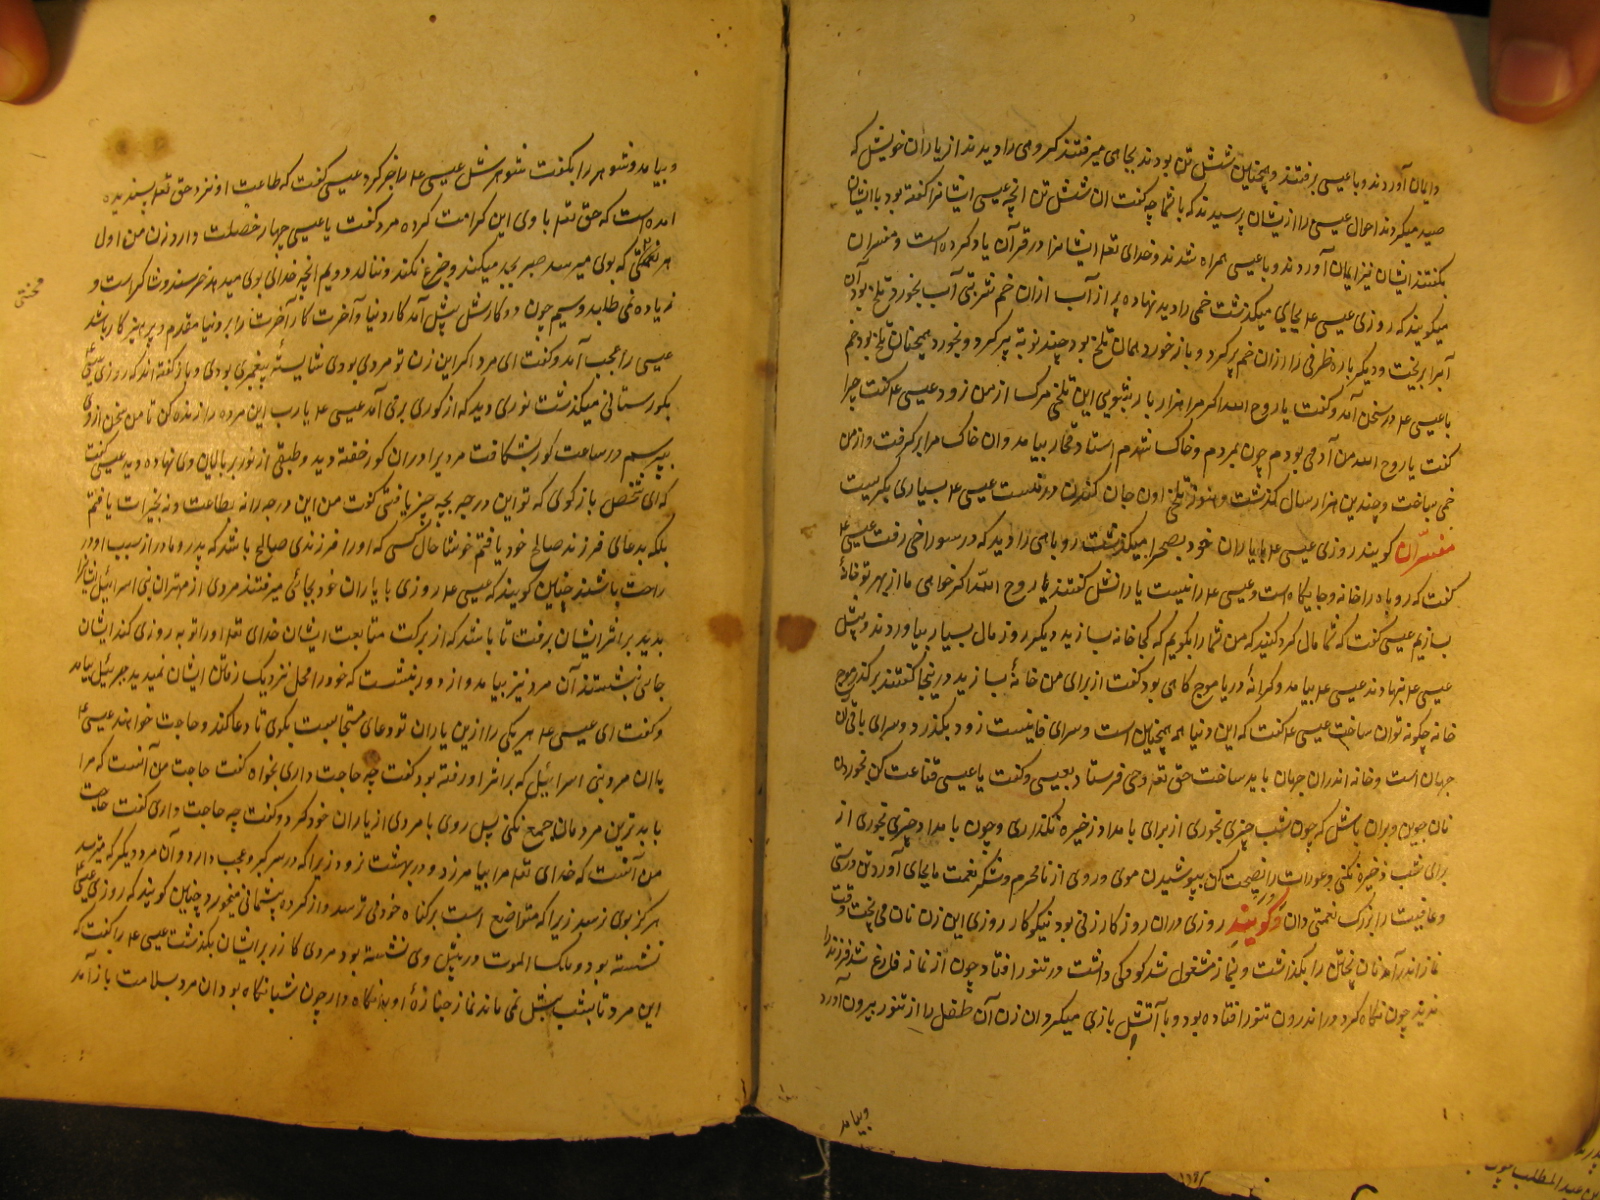 و ایمان آوردند و با عیسی برفتند و همچنین شش تن بودند بجاهی میرفتند کروهی را دیدند از یاران خویش که
صید میکردند احوال عیسی را ازیشان پرسیدند که با شما چه کفت ان شش تن انچه عیسی ایشانرا کفته بود با ایشان
بکفتند ایشان نیز ایمان آوردند و با عیسی همراه شدند و خدای تعه ایشانرا در قرآن یاد کرده است و مفسران
میکویند که روزی عیسی ع بجایی میکذشت خمی را دید نهاده پر از آب ازان خم شربتی آب بخورد تلخ بود آن
آبرا بریخت و دیکر باره ظرفی را ازان خم پر کرد و باز خورد همان تلخ بود چند نوبه پر کرد و بخورد همچنان تلخ بود خم
با عیسی ع در سخن آمد و کفت یا روح الله اکر مرا هزار بار بشویی این تلخی مرک از من نرود عیسی ع کفت چرا
کفت یا روح الله من آدمی بودم چون بمردم و خاک شدم استاد فخار بیامد و ان خاک مرا بر کرفت و از من
خمی ساخت و چندین هزار سال کذشت و هنوز تلخی اون جان کندن در منست عیسی ع بسیاری بکریست
مفسران کویند روزی عیسی ع با یاران خود بصحرا میکذشت روباهی را دید که در سوراخی رفت عیسی ع
کفت که روباه را خانه و جایکاه است و عیسی ع را نیست یارانش کفتند یا روح الله اکر خواهی ما از بهر تو خانهٔ
بسازیم عیسی کفت که شما مال کرد کنید که من شما را بکویم که کجا خانه سازید دیکر روز مال بسیار بیاوردند و پیش
عیسی ع بنهادند عیسی ع بیامد و کرانهٔ دریا موج کاهی بود کفت از برای من خانهٔ سازید درینجا کفتند بر کذر موج
خانه چکونه توان ساخت عیسی ع کفت که این دنیا همه همچنین است و سرای فانیست زود بکذرد و سرای باقی آن
جهان است و خانه اندران جهان باید ساخت حق تعه وحی فرستاد بعیسی و کفت یا عیسی قناعت کن بخوردن
نان جوین و بران باش که چون شب چیزی بخوری از برای بامداد ذخیره نکذاری و چون بامداد چیزی بخوری از
برای شب ذخیره نکنی و عورات را نصیحت کن بپوشیدن موی و روی از نامحرم و شکر نعمت ما بجای آور و تن درستی
و عافیت را بزرک نعمتی دان و کویند روزی دران روزکار زنی بود نیکوکار روزی این زن نان می پخت وقت
نماز اندر آمد نان پختن را بکذاشت و بنماز مشغول شد کودکی داشت در تنور افتاد چون از نماز فارغ شد فرزند را
ندید چون نکاه کرد در اندرون تنور افتاده بود و با آتش بازی میکرد ان زن آن طفل را از تنور بیرون آورد
و بیامد
و بیامد و شوهر را بکفت شوهرش عیسی ع را خبر کرد عیسی کفت که طاعت او نزد حق تعه پسندیده
آمده است که حق تعه با وی این کرامت کرده مرد کفت یا عیسی چهار خصلت دارد زن من اول
هر محنتی که بوی میرسد صبر بجد میکند و جزع نکند و ننالد دویم انچه خدای بوی میدهد خرسند و شاکر است و
زیاده نمی طلبد و سیم چون دو کارش پیش آمد کار دنیا و آخرت کار آخرت را بر دنیا مقدم و پرهیزکار باشد
عیسی را عجب آمد و کفت ای مرد اکر این زن تو مردی بودی شایستهٔ پیغمبری بودی و باز کفته اند که روزی عیسی ع
بکورستانی میکذشت نوری دید که از کوری برمی آمد عیسی ع یا رب این مرده را زنده کن تا من سخن از وی
بپرسم در ساعت کور بشکافت مرد پیرا دران کور خفته دید و طبقی از نور بر بالین وی نهاده دید عیسی کفت
که ای شخص باز کوی که تو این درجه بچه چیز یافتی کفت من این درجه را نه بطاعت و نه بخیرات یافتم
بلکه بدعای فرزند صالح خود یافتم خوشا حال کسی که او را فرزندی صالح باشد که پدر و مادر از سبب او در
راحت باشند چنین کویند که عیسی ع روزی با یاران خود بجائی میرفتند مردی از مهتران بنی اسرائیل ایشانرا
بدید بر اثر ایشان برفت تا باشد که از برکت متابعت ایشان خدای تعه او را توبه روزی کند ایشان
جایی نشستند آن مرد نیز بیامد و از دور بنشست که خود را محل نزدیک رفتن ایشان نمیدید جبرئیل بیامد
و کفت ای عیسی ع هر یکی را ازین یاران تو دعای مستجابست بکوی تا دعا کند و حاجت خواهند عیسی ع
با ان مرد بنی اسرائیل که بر اثر او رفته بود کفت چه حاجت داری بخواه کفت حاجت من آنست که مرا
با بدترین مردمان جمع نکنی پس روی با مردی از یاران خود کرد و کفت چه حاجت داری کفت حاجت
من آنست که خدای تعه مرا بیامرزد و در بهشت نرود زیرا که در سر کبر و عجب دارد و آن مرد دیکر که میترسد
هرکز بوی نرسد زیرا که متواضع است بر کناه خود می ترسد و از کرده پشیمانی میخورد چنین کویند که روزی عیسی ع
نشسته بود و ملک الموت در پیش وی نشسته بود مردی کازر بر ایشان بکذشت عیسی ع را کفت که
این مرد تا بشب بیش نمی ماند نماز جنازهٔ او بنکاه دار چون شبانکاه بود ان مرد بسلامت باز آمد
محنتی